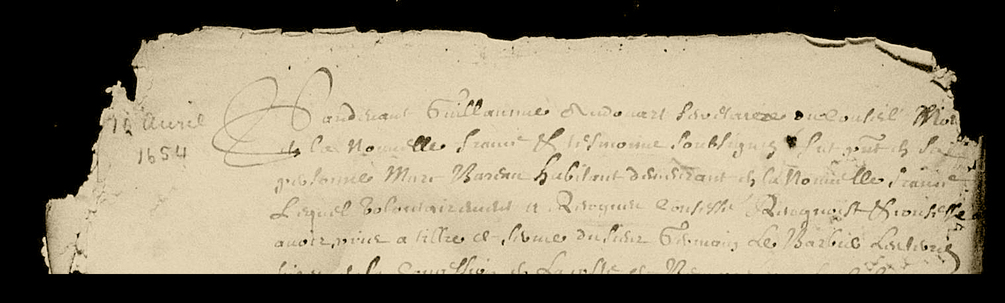 10 Avril
1654
Pardevant Guillaume Audouart Secretaire du Conseil
de la Nouvelle france & tesmoins soubsignez fut pnt en sa
personne Marc Bareau habitant demeurant en la Nouvelle france
Lequel volontairement a Recogneu confessé Recognoist & confesse
avoir prins a tiltre de ferme du sieur Germain Le Barbier